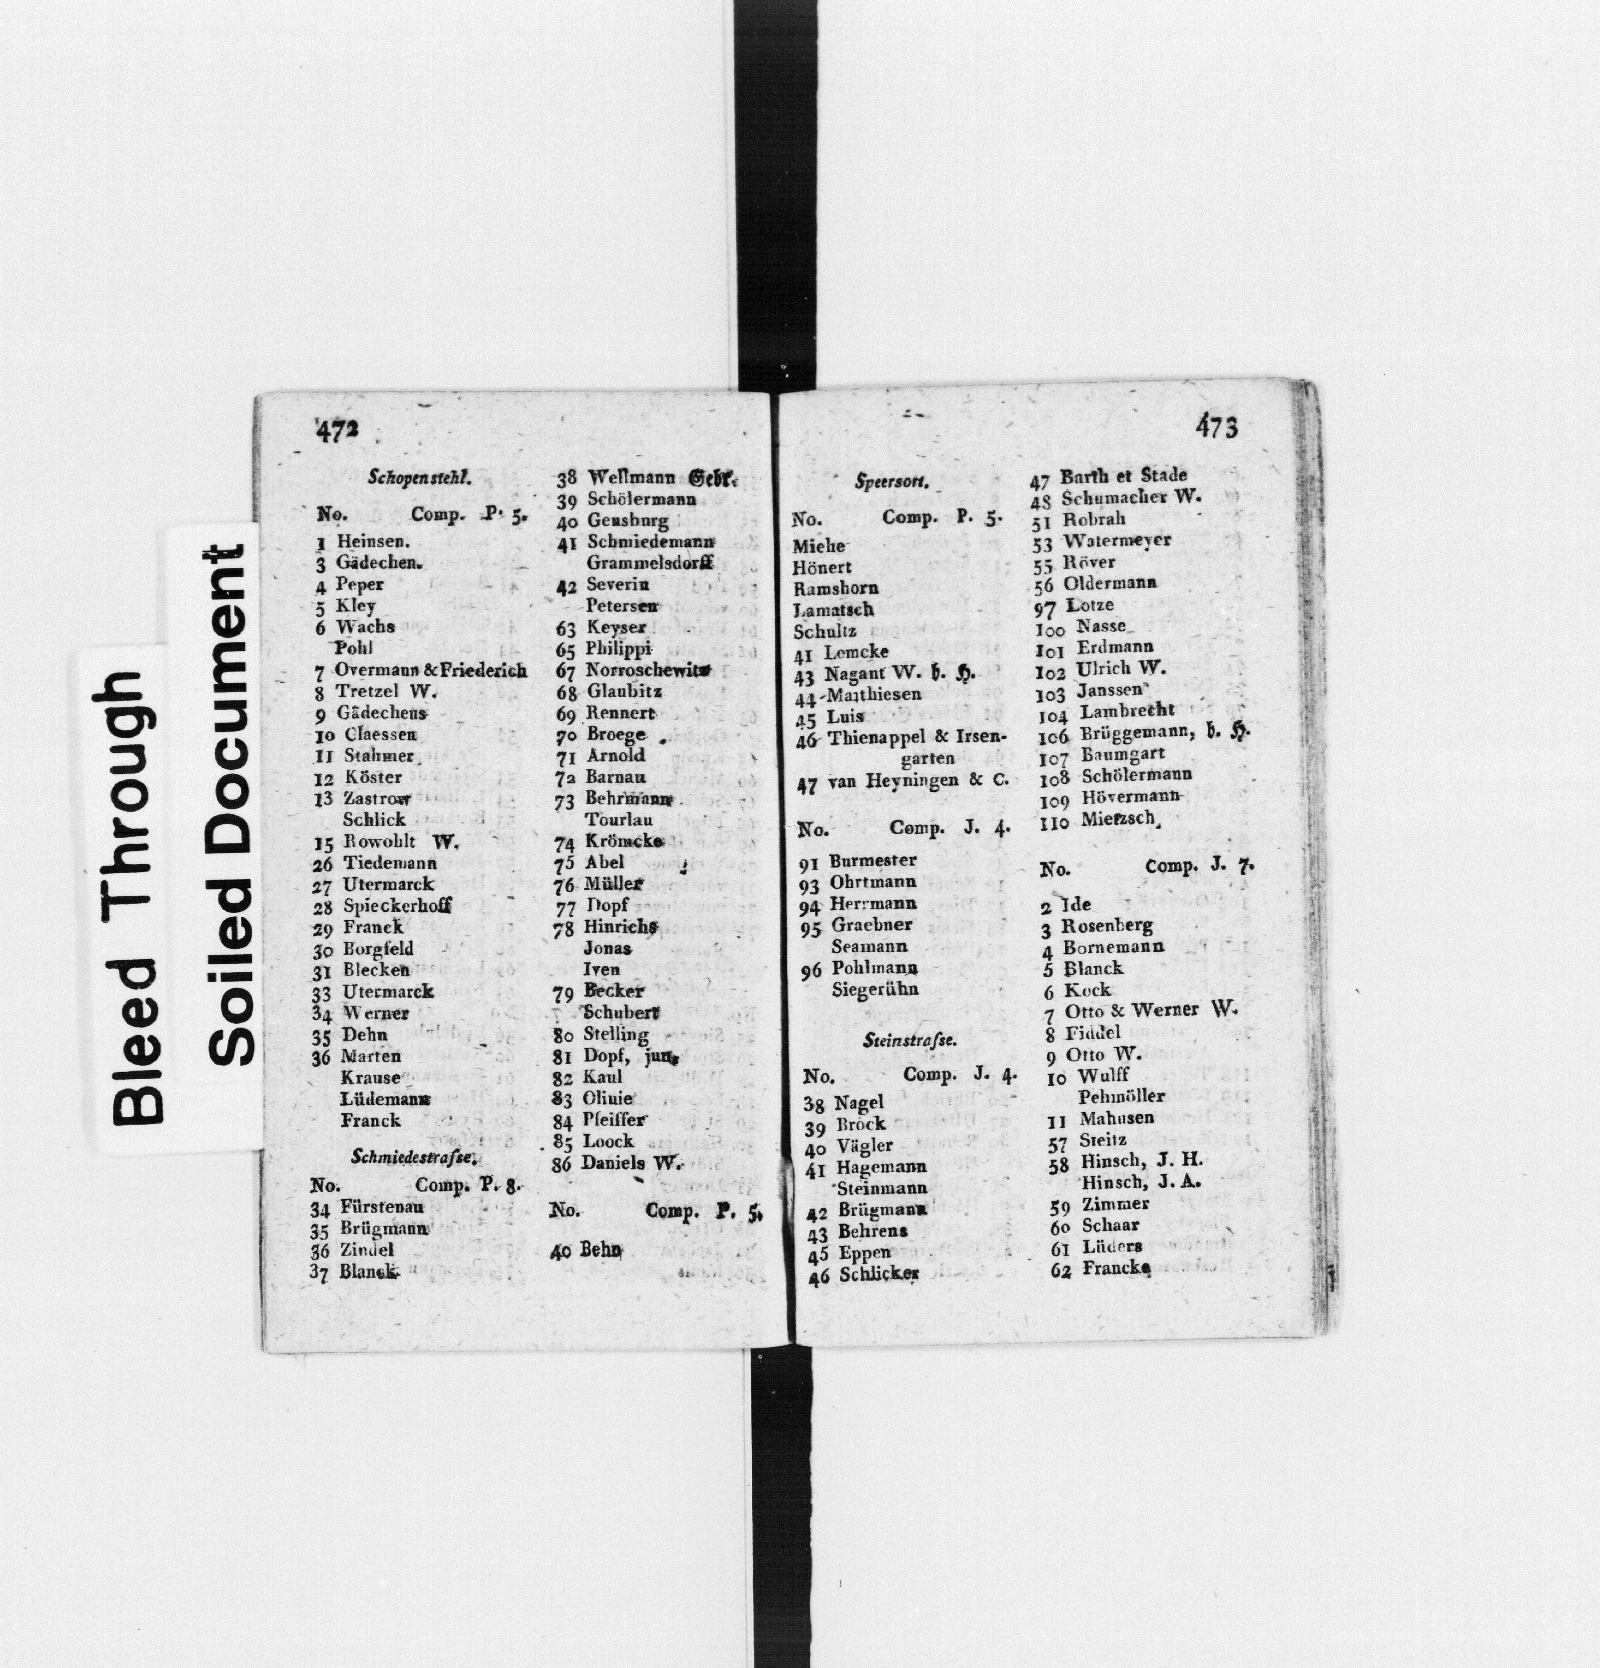 Bleed Through
Soiled Document
472
Schopenstehl.
No. Comp. P. 5.
1 Heinsen.
3 Gädechen.
4 Peper
5 Kley
6 Wachs
Pohl
7 Overmann & Friederich
8 Tretzel W.
9 Gädechens
10 Claessen
11 Stahmer
12 Köster
13 Zastrow
Schlick
15 Rowohlt W.
26 Tiedemann
27 Utermarck
28 Spieckerhoff
29 Franck
30 Borgfeld
31 Blecken
33 Utermarck
34 Werner
35 Dehn
36 Marten
Krause
Lüdemann
Franck
Schmiedestraſse.
No. Comp. P. 8.
34 Fürstenau
35 Brügmann
36 Zindel
37 Blanck
38 Wellmann Gebr.
39 Schölermann
40 Gensburg
41 Schmiedemann
Grammelsdorff
42 Severin
Petersen
63 Keyser
65 Philippi
67 Norroschewitz
68 Glaubitz
69 Rennert
70 Broege
71 Arnold
72 Barnau
73 Behrmann
Tourlau
74 Krömcke
75 Abel
76 Müller
77 Dopf
78 Hinrichs
Jonas
Iven
79 Becker
Schubert
80 Stelling
81 Dopf, jun.
82 Kaul
83 Olinie
84 Pfeiffer
85 Loock
86 Daniels W.
No. Comp. P. 5.
40 Behn
473
Speersort.
No. Comp. P. 5.
Miehe
Hönert
Ramshorn
Lamatsch
Schultz
41 Lemcke
43 Nagant W. b. H.
44 Matthiesen
45 Luis
46 Thienappel & Irsen-
garten
47 van Heyningen & C.
No. Comp. J. 4.
91 Burmester
93 Ohrtmann
94 Herrmann
95 Graebner
Seamann
96 Pohlmann
Siegerühn
Steinstraſse.
No. Comp. J. 4.
38 Nagel
39 Brock
40 Vägler
41 Hagemann
Steinmann
42 Brügmann
43 Behrens
45 Eppen
46 Schlicker
47 Barth et Stade
48 Schumacher W.
51 Robrah
53 Watermeyer
55 Röver
56 Oldermann
97 Lotze
100 Nasse
101 Erdmann
102 Ulrich W.
103 Janssen
104 Lambrecht
106 Brüggemann, b. H.
107 Baumgart
108 Schölermann
109 Hövermann
110 Mietzsch
No. Comp. J. 7.
2 Ide
3 Rosenberg
4 Bornemann
5 Blanck
6 Kock
7 Otto & Werner W.
8 Fiddel
9 Otto W.
10 Wulff
Pehmöller
11 Mahnsen
57 Steitz
58 Hinsch, J. H.
Hinsch, J. A.
59 Zimmer
60 Schaar
61 Lüders
62 Francke